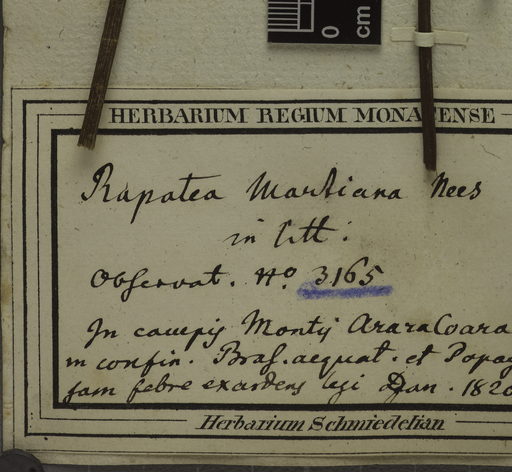 0 cm
HERBARIUM REGIUM MONACENSE
Rapatea Martiana Nees
in litt:
Observat. No. 3165
In campis Montis AraraCoara
in confin. Bras. aequat. et Popay
jam febre exardens legi Jan. 1820
Herbarium Schmiedelian